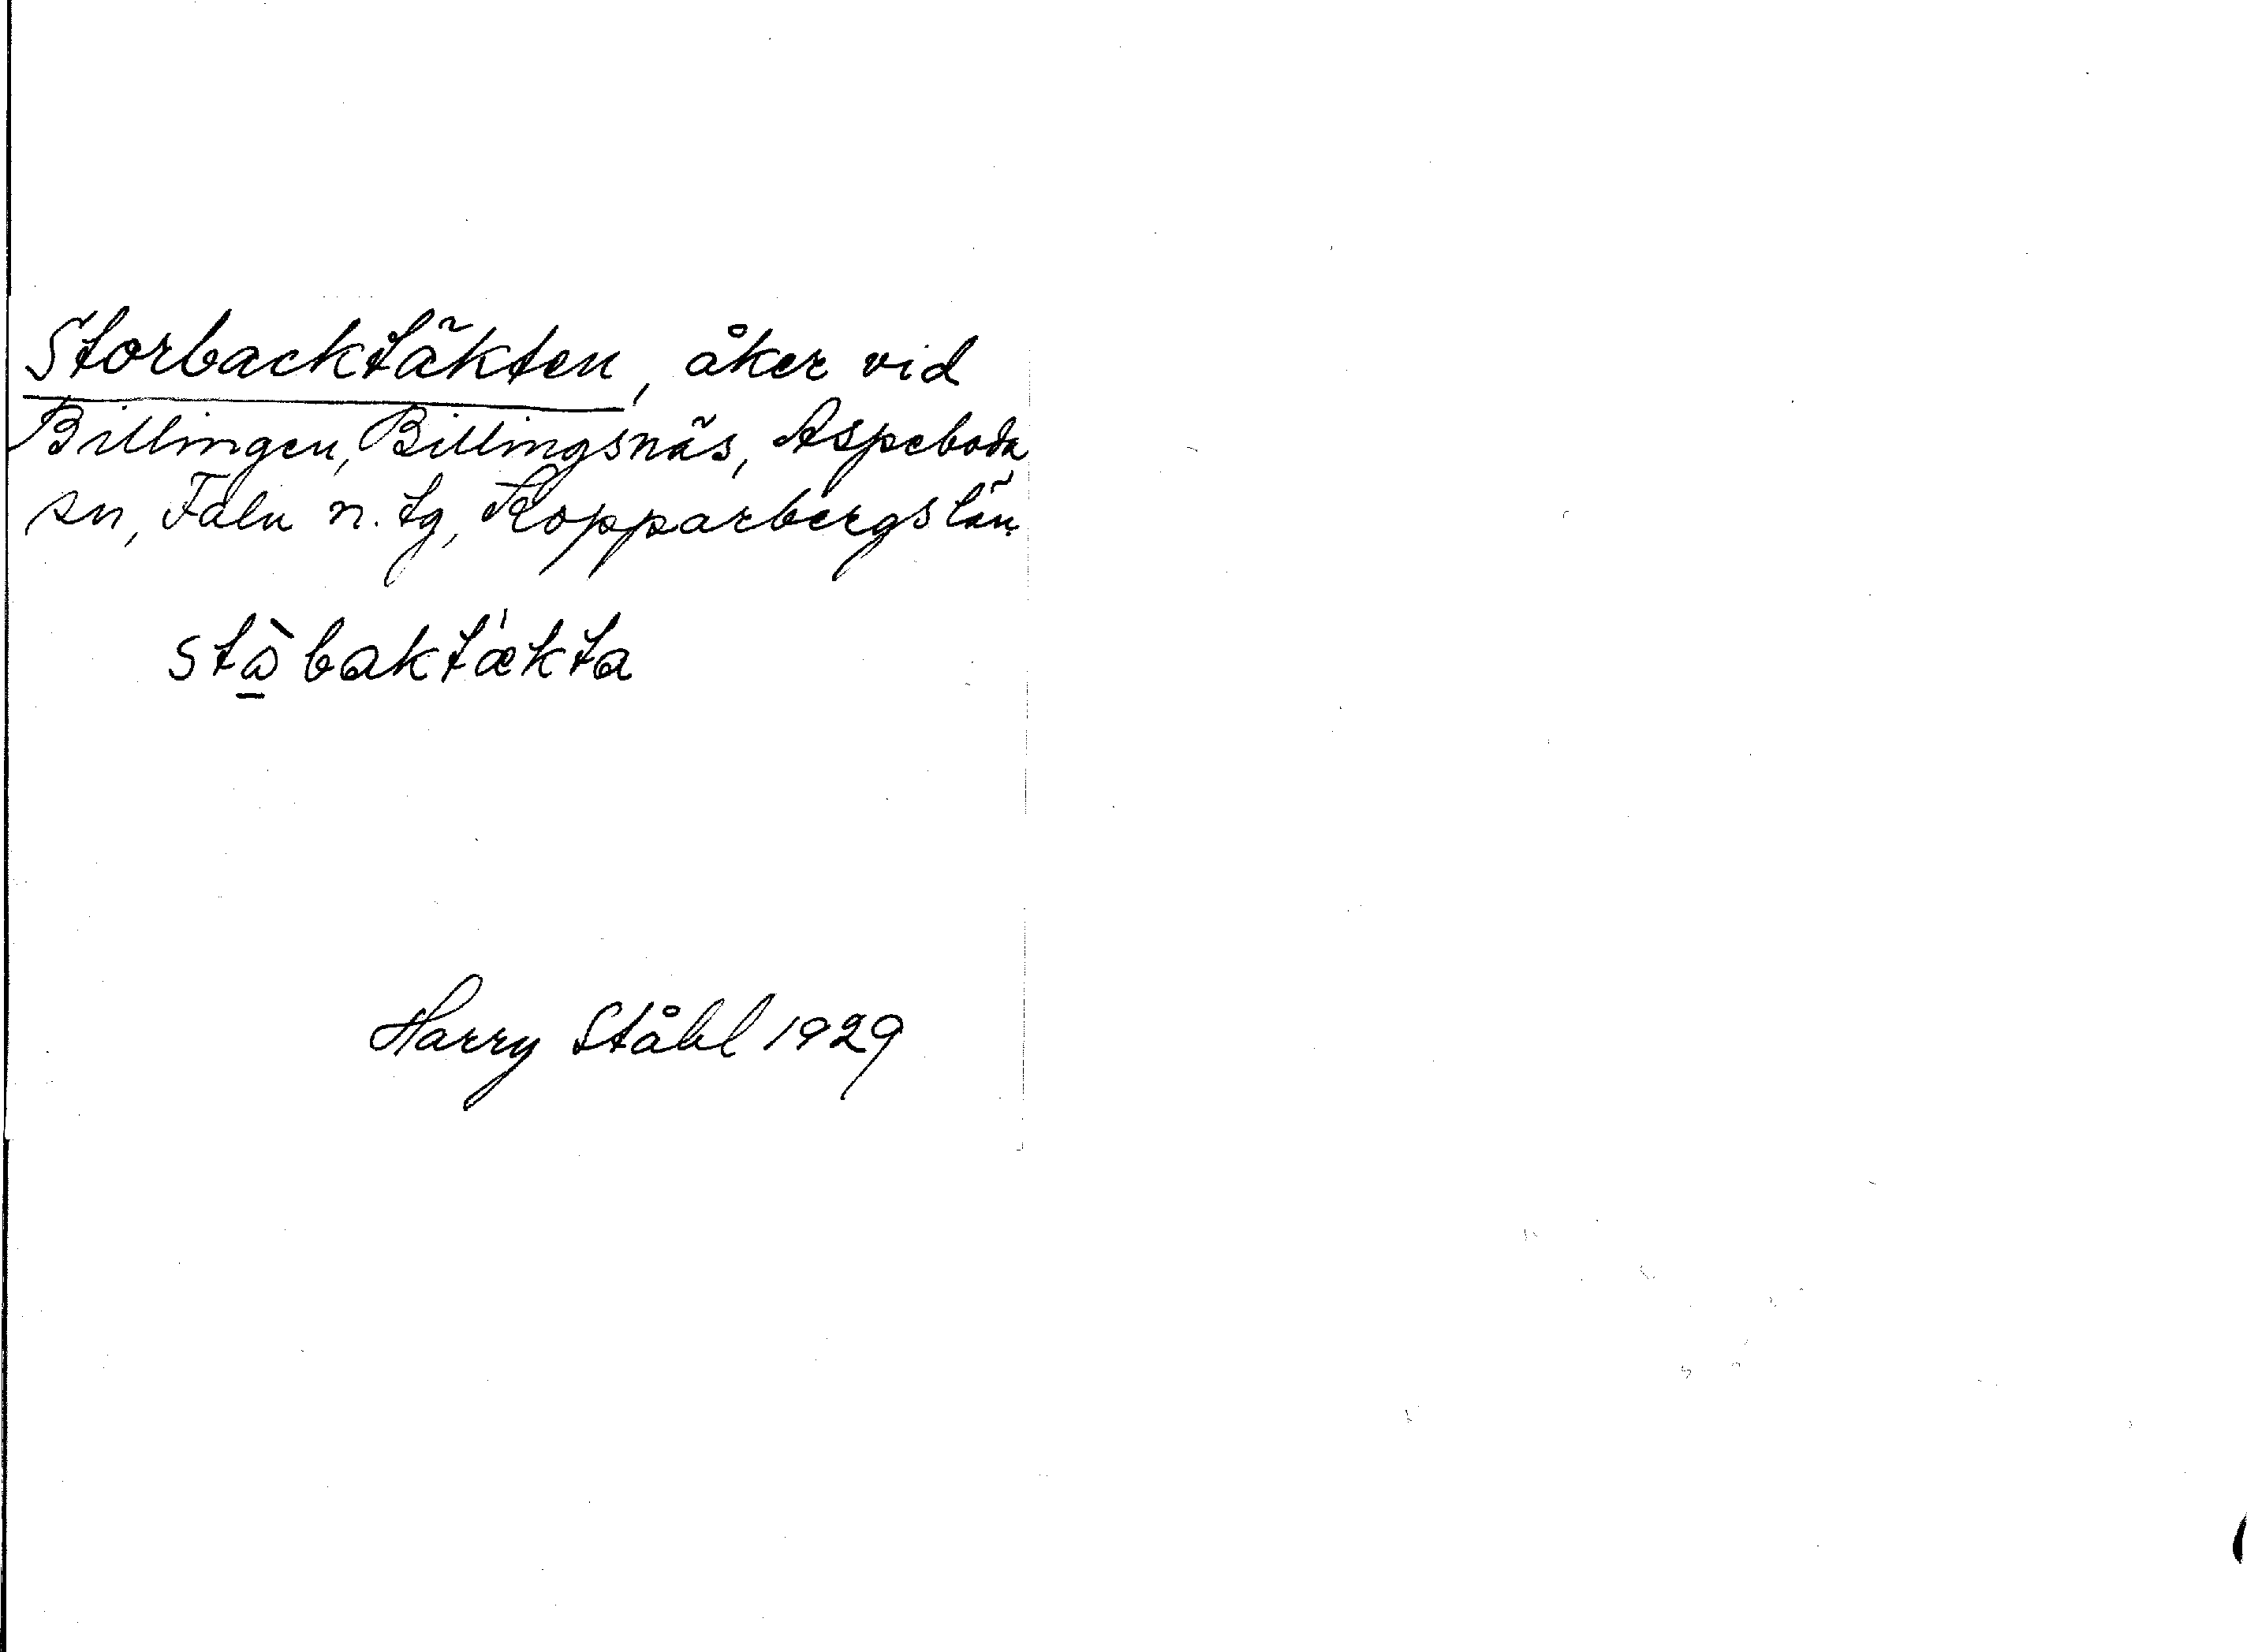 Storbacktäkten, åker vid
Billingen, Billingsnäs, Aspeboda
sn, Falu n. tg, Kopparbergs län.
stà̱baktækta
Harry Ståhl 1929